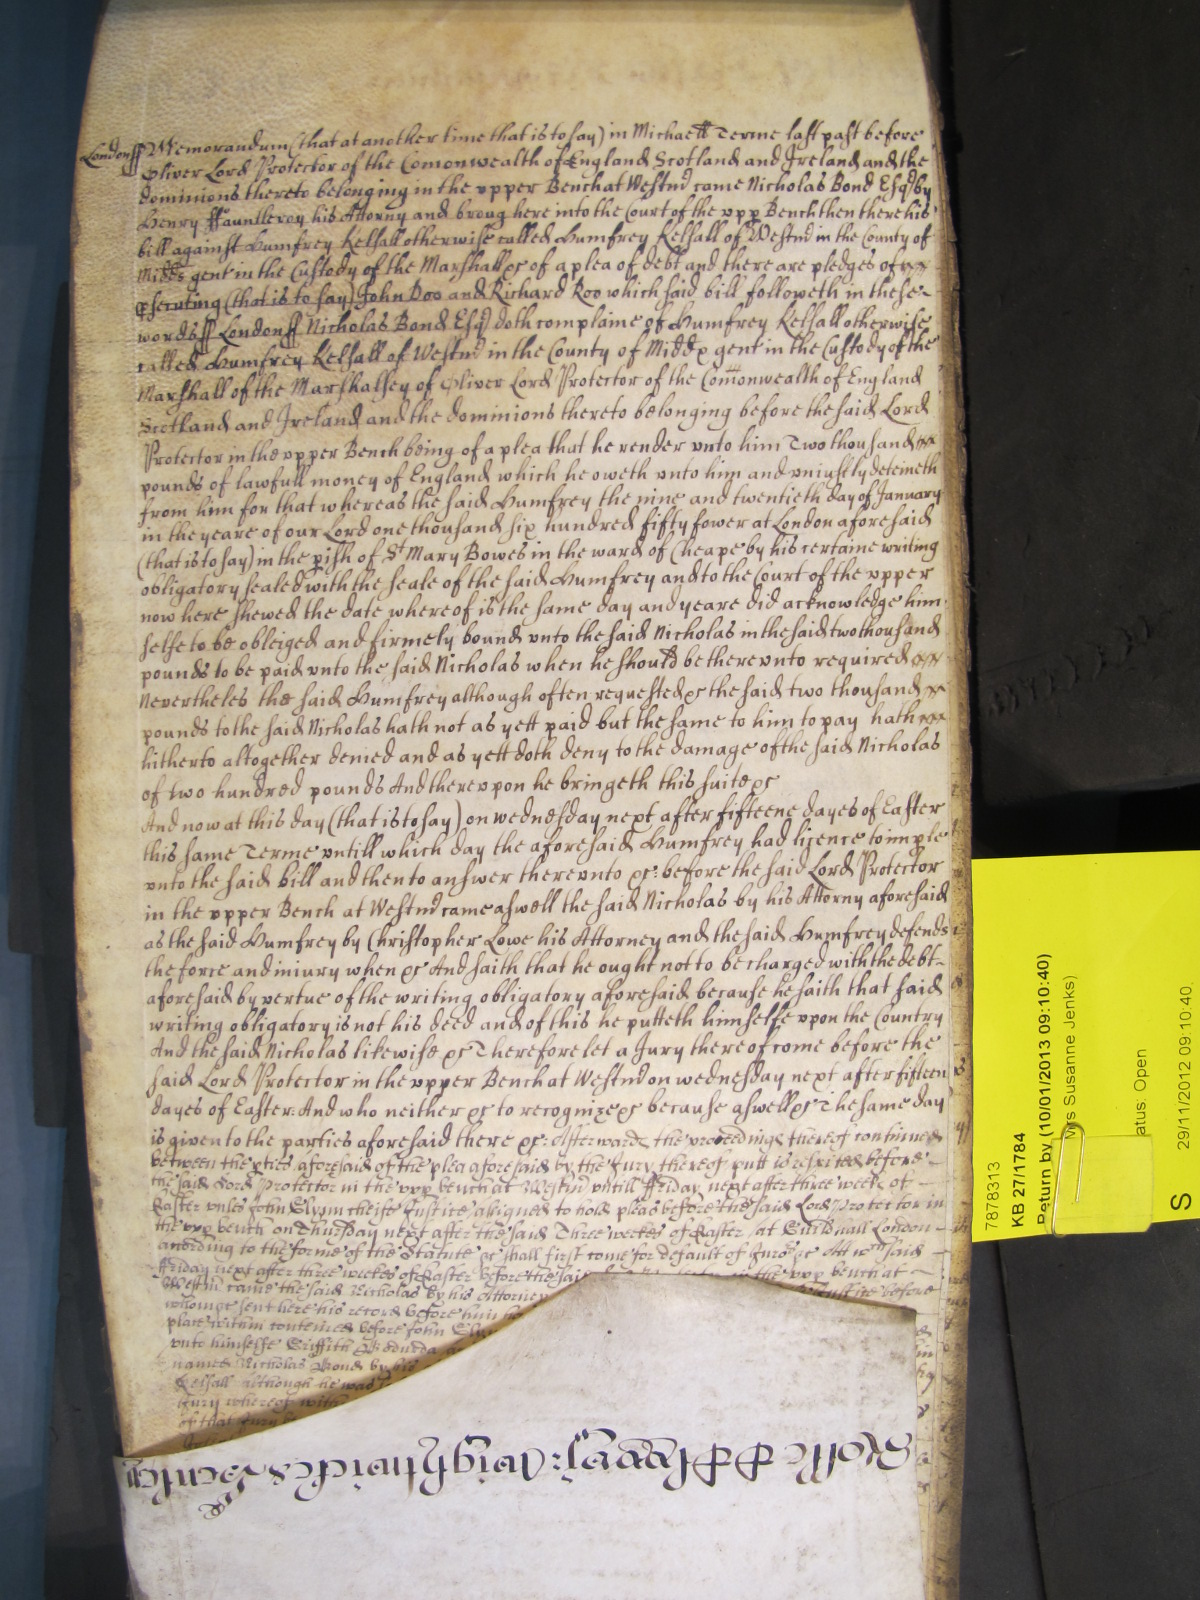 Londonff Memorandum (that at another time that is to say) in Michaell Terme last past before
Oliver Lord Protector of the Comonwealth of England Scotland and Ireland and the
dominions thereto belonging in the upper Bench at Westmr came Nicholas Bond Esqr by
Henry ffauntleroy his Attorny and broug here into the Court of the upp Bench then there his
bill against Humfrey Kelsall otherwise called Humfrey Kelsall of Westmr in the County of
Midds gent in the Custody of the Marshall &c of a plea of debt and there are pledges of
pseruting (that is to say) John Doo and Richard Roo which said bill followeth in these
words ff Londonff Nicholas Bond Esqr doth complaine of Humfrey Kelsall otherwise
called Humfrey Kelsall of Westmr in the County of Middx gent in the Custody of the
Marshall of the Marshalsey of Oliver Lord Protector of the Comonwealth of England
Scotland and Ireland and the dominions thereto belonging before the said Lord
Protector in the upper Bench being of a plea that he render unto him Two thousand
pounds of lawfull money of England which he oweth unto him and uniustly deteineth
from him for that whereas the said Humfrey the nine and twentieth day of January
in the yeare of our Lord one thousand six hundred fifty fower at London aforesaid
(that is to say) in the pish of St Mary Bowes in the ward of Cheape by his certaine writing
obligatory sealed with the seale of the said Humfrey and to the Court of the upper
now here shewed the date whereof is the same day and yeare did acknowledge him
selfe to be obleiged and firmely bound unto the said Nicholas in the said two thousand
pounds to be paid unto the said Nicholas when he should be thereunto required
Nevertheles the said Humfrey although often requested &c the said two thousand
pounds to the said Nicholas hath not as yett paid but the same to him to pay hath
hitherto altogether denied and as yett doth deny to the damage of the said Nicholas
of two hundred pounds And thereupon he bringeth this suite &c
And now at this day (that is to say) on wednesday next after fifteene dayes of Easter
this same Terme untill which day the aforesaid Humfrey had licence to imple
unto the said bill and then to answer thereunto &c: before the said Lord Protector
in the upper Bench at Westmr came aswell the said Nicholas by his Attorny aforesaid
as the said Humfrey by Christopher Lowe his Attorney and the said Humfrey defends
the force and iniury when &c And saith that he ought not to be charged with the debt
aforesaid by vertue of the writing obligatory aforesaid because he saith that said
writing obligatory is not his deed and of this he putteth himselfe upon the Country
And the said Nicholas likewise &c Therefore let a Jury thereof come before the
said Lord Protector in the upper Bench at Westmr on wednesday next after fifteen
dayes of Easter And who neither &c to recognize &c because aswell &c The same day
is given to the parties aforesaid there &c: Afterwards the proceedings thereof continued
between the pties aforesaid of the plea aforesaid by the Jury thereof putt is respited before
the said Lord Protector in the upp bench at Westmr untill ffriday next after three weeks of
Easter unles John Glynn cheife Justice assigned to hold pleas before the said Lord Protector in
the upp bench on Thursday next after the said Three weekes of Easter at Guildhall London
according to the forme of the Statute &c shall first come for default of Juro &c Att wch said
ffriday next after three weekes of Easter before the said in the upp bench at
Westmr came the said Nicholas by his Attorney Justice before
whome sent here his record before him
place within conteined before John
unto himselfe Griffith Bodurda
named Nicholas Bond by his
Kelsall although he was
Jury whereof
of that Jury
Rolle
7878313
KB 27/1784
Return by (10/01/2013 09:10:40)
Mrs Susanne Jenks)
atus: Open
29/11/2012 09:10:40
S